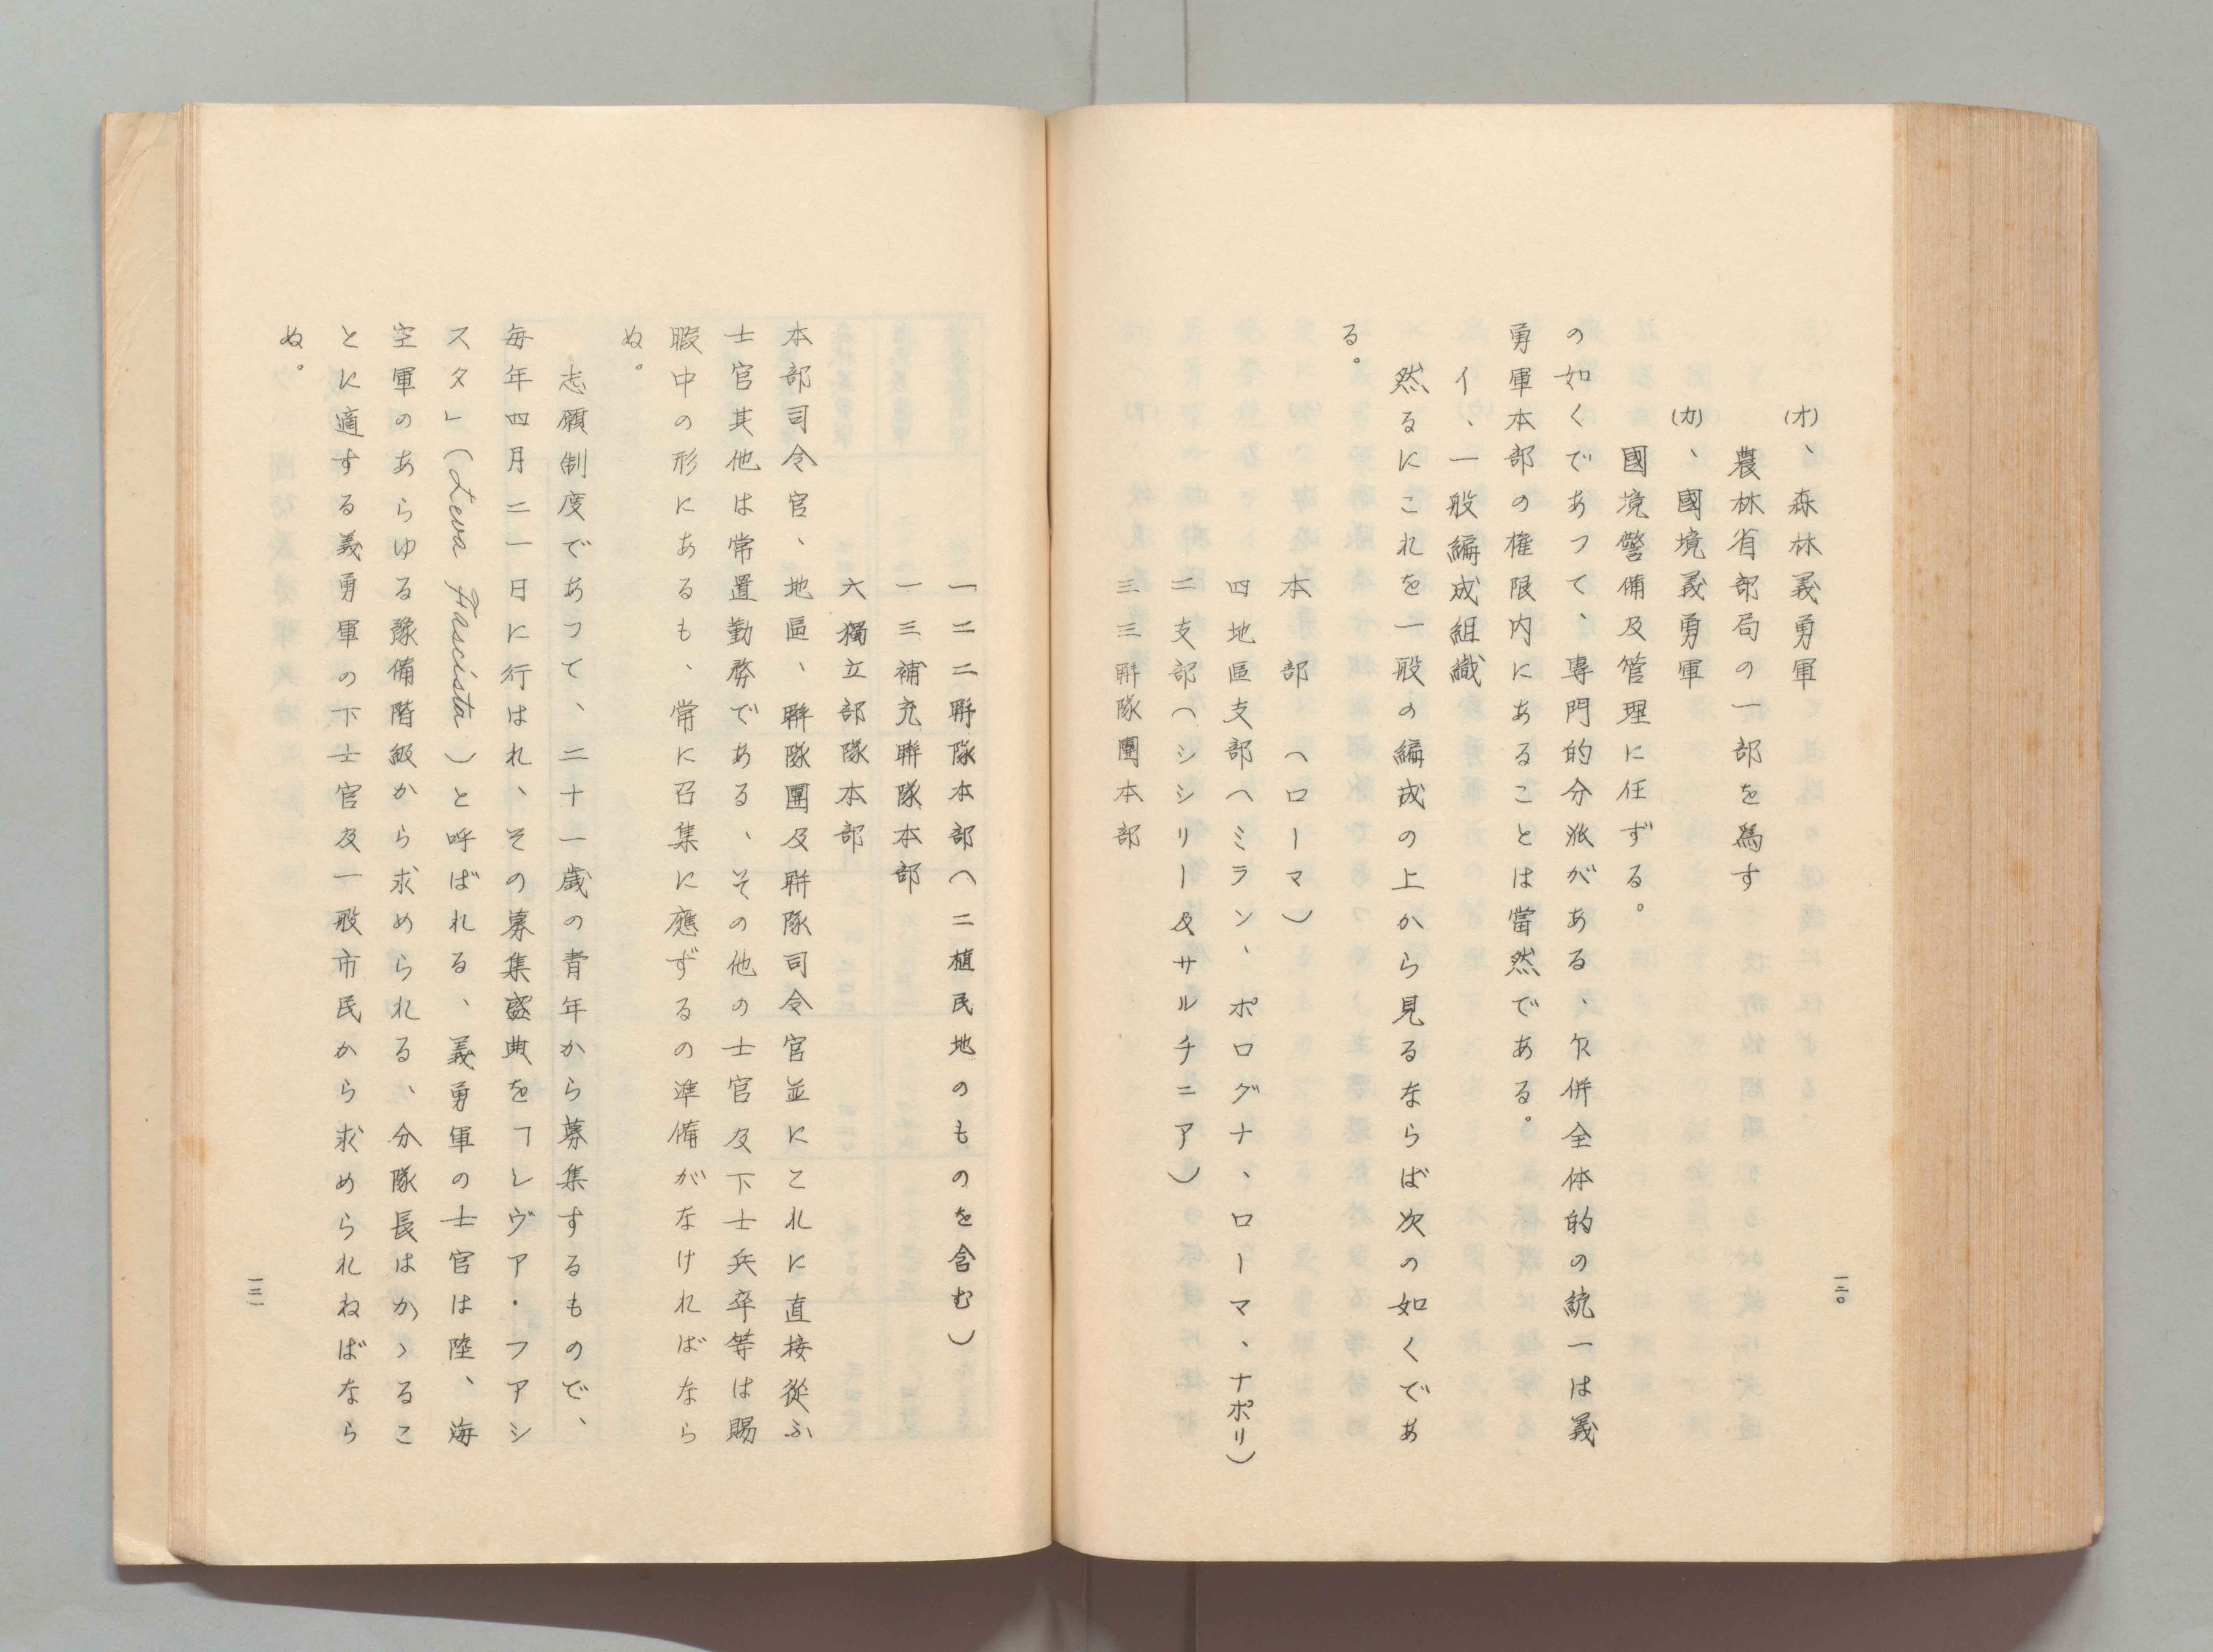 (オ)、森林義勇軍
農林省部局の一部を為す
(カ)、國境義勇軍
國境警備及管理に任ずる。
の如くであつて、專門的分派がある、尓併全体的の統一は義
勇軍本部の権限内にあることは當然である。
イ、一般編成組織
然るにこれを一般の編成の上から見るならば次の如くであ
る。
本部(ローマ)
四地區支部(ミラン、ポログナ、ローマ、ナポリ)
二支部(シシリー及サルチニア)
三三聯隊團本部
一三〇
一二二聯隊本部(二植民地のものを含む)
一三補充聯隊本部
六獨立部隊本部
本部司令官、地區、聯隊團及聯隊司令官並にこれに直接從ふ
士官其他は常置勤務である、その他の士官及下士兵卒等は賜
暇中の形にあるも、常に召集に應ずるの準備がなければなら
ぬ。
志願制度であつて、二十一歳の青年から募集するもので、
毎年四月二一日に行はれ、その募集盛典を「レヴア・フアシ
スタ」(Leva Fascista)と呼ばれる、義勇軍の士官は陸、海
空軍のあらゆる豫備階級から求められる、分隊長はかゝるこ
とに適する義勇軍の下士官及一般市民から求められねばなら
ぬ。
一三一